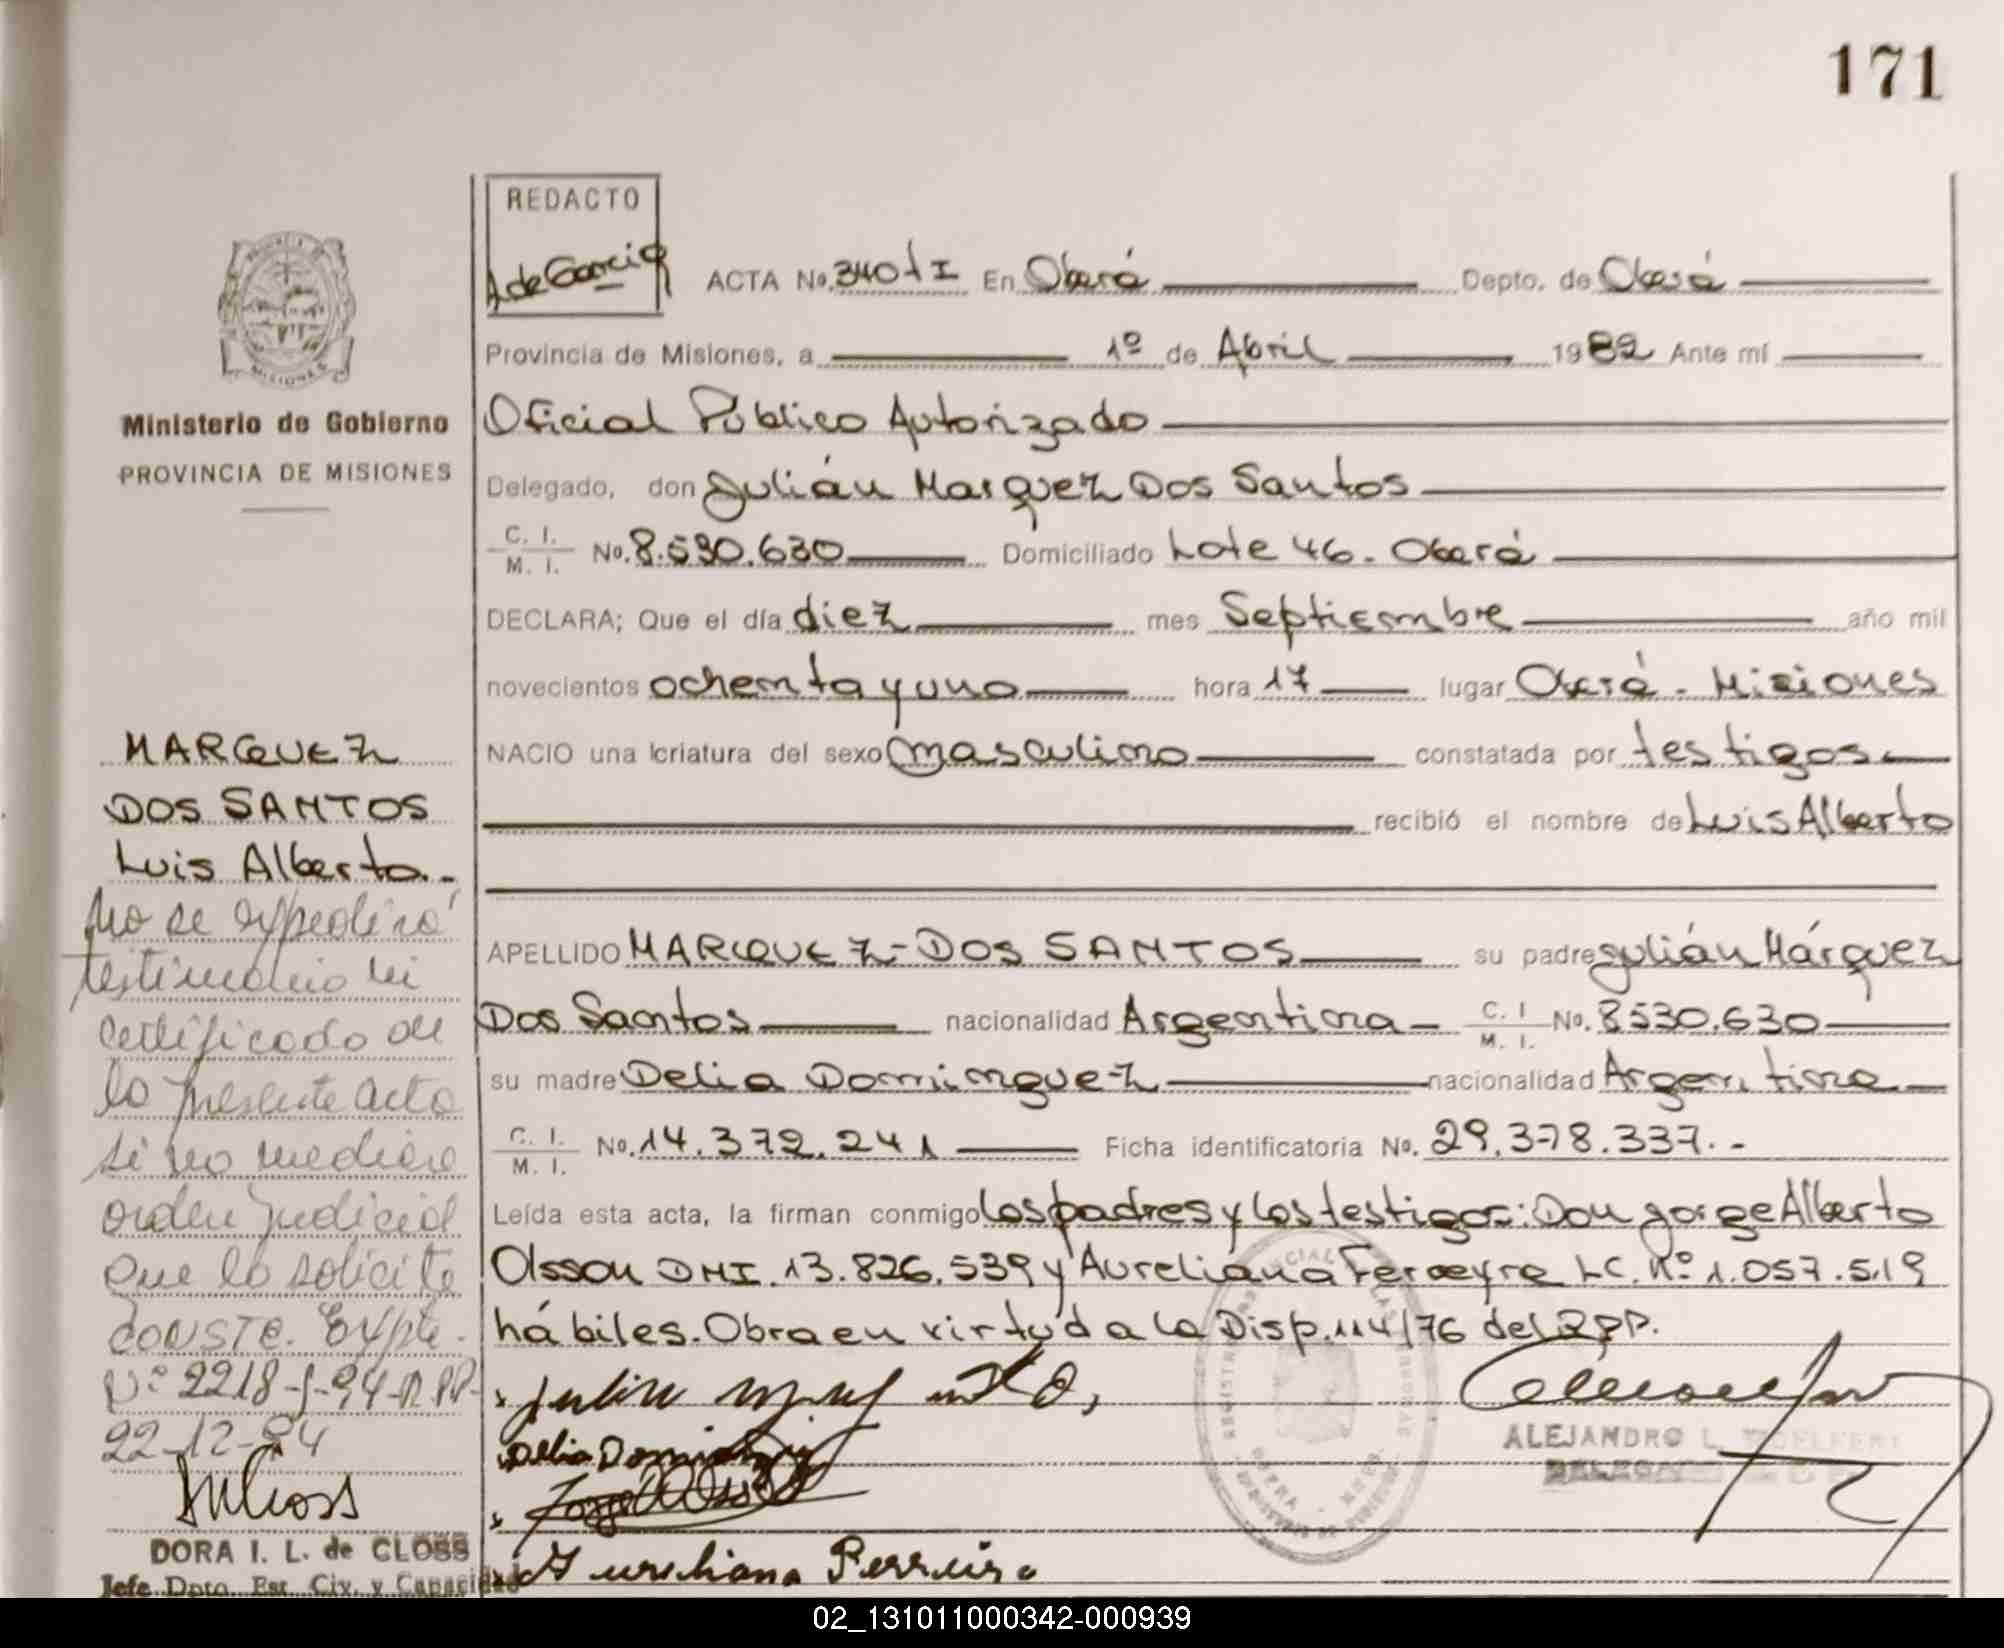 171
REDACTO
A de Garcia
ACTA No. 340 t I En Oberá Depto. de Oberá
Provincia de Misiones, a 1º de Abril 1982 Ante mí
Oficial Público Autorizado
Delegado, don Julián Marquez Dos Santos
C. I. M. I. No. 8.530.630 Domiciliado Lote 46. Oberá
DECLARA; Que el día diez mes Septiembre año mil
novecientos ochenta y uno hora 17 lugar Oberá - Misiones
NACIO una criatura del sexo masculino constatada por testigos
recibió el nombre de Luis Alberto
APELLIDO MARQUEZ-DOS SANTOS su padre Julián Márquez
Dos Santos nacionalidad Argentina C. I M. I. No. 8530.630
su madre Delia Dominguez nacionalidad Argentina
C. I. M. I. No. 14.372.241 Ficha identificatoria No. 29.378.337.-
Leída esta acta, la firman conmigo los padres y los testigos: Don Jorge Alberto
Olsson DNI. 13.826.539 y Aureliana Ferreyra LC. Nº 1.057.519
hábiles. Obra en virtud a la Disp. 114/76 del RPP.
Delia Dominguez
Aureliana Ferreira
ALEJANDRO L.
MISIONES
Ministerio de Gobierno
PROVINCIA DE MISIONES
MARQUEZ
DOS SANTOS
Luis Alberto.-
No se expedirá
testimonio ni
certificado de
la presente acta
si no mediare
orden judicial
que lo solicite
CONSTE. Expte.
Nº 2218-J-94-R.PP-
22-12-94
DORA I. L. de CLOSS
Jefe Dpto. Est. Civ. y Capacidad
02_131011000342-000939